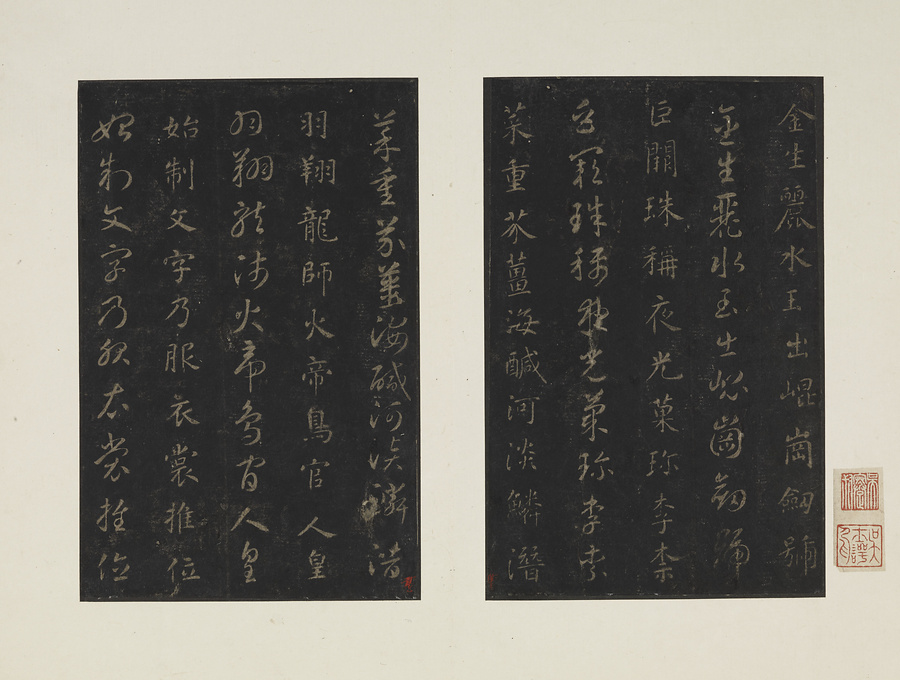 金生麗水玉出崐崗劒號
金生麗水玉出崐崗劒號
巨闕珠稱夜光菓珎李柰
巨闕珠稱夜光菓珎李柰
菜重芥薑海醎河淡鱗潛
菜重芥薑海醎河淡鱗潛
羽翔龍師火帝鳥官人皇
羽翔龍師火帝鳥官人皇
始制文字乃服衣裳推位
始制文字乃服衣裳推位